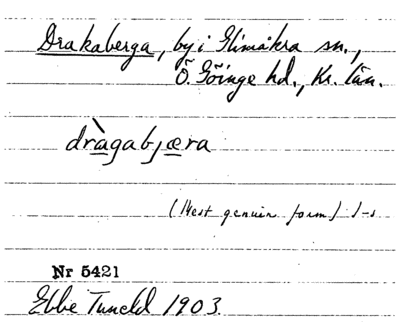 Drakaberga, by i Glimåkra sn.,
Ö. Göinge hd., Kr. län.
dràgabjæra
(Mest genuin form) 1-s
Nr 5421
Ebbe Tuneld 1903.